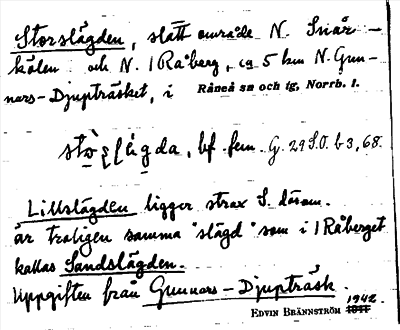 Storslägden, slätt område N. Snår-
kölen och N. I Råberg, ca 5 km N. Gun-
nars-Djupträsket, i Råneå sn och tg, Norrb. l.
bf. fem. G. 29 S.O. b 3, 68.
Lillslägden ligger strax S. därom.
är troligen samma "slägd" som i I Råberget
kallas Sandslägden.
Uppgiften från Gunnars-Djupträsk.
EDVIN BRÄNNSTRÖM 1942.